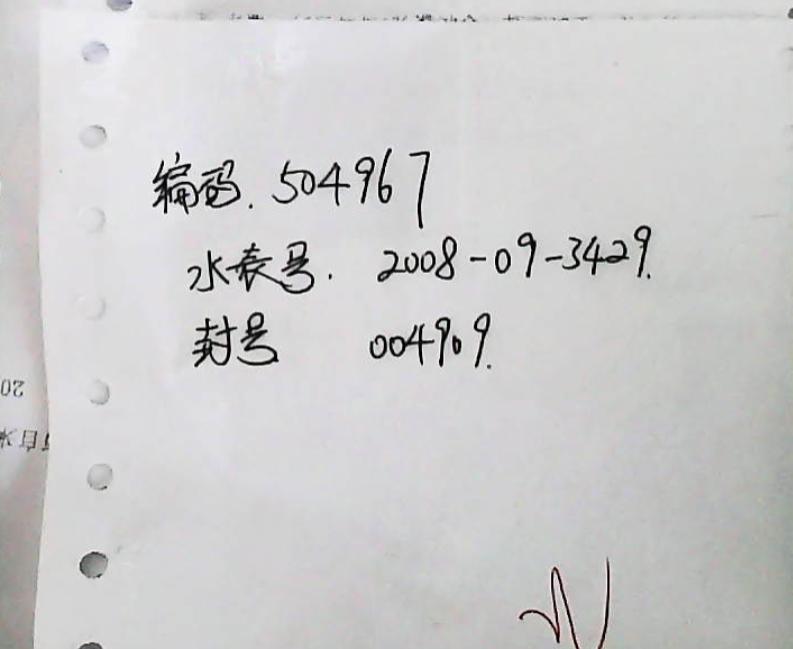 编码. 504967
水表号. 2008-09-3429.
封号 004909.
20